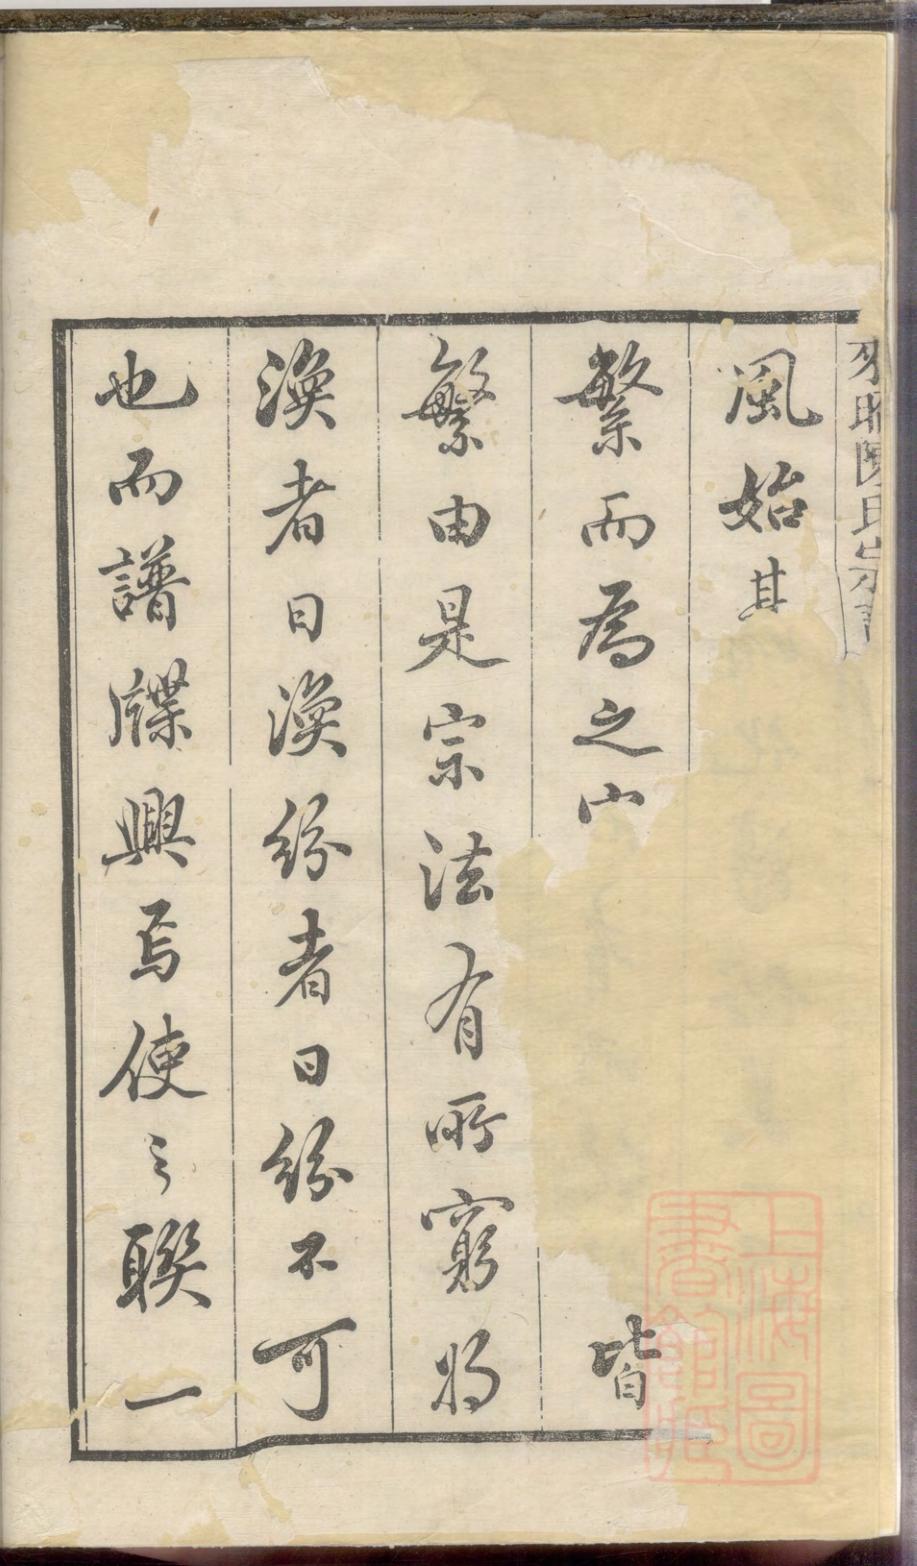 陳氏宗
風始其
繁而為之皆
繁由是宗法有所窮將
渙者日渙紛者日紛不可
也而譜牒興焉使之聯一
上海圖
書館藏